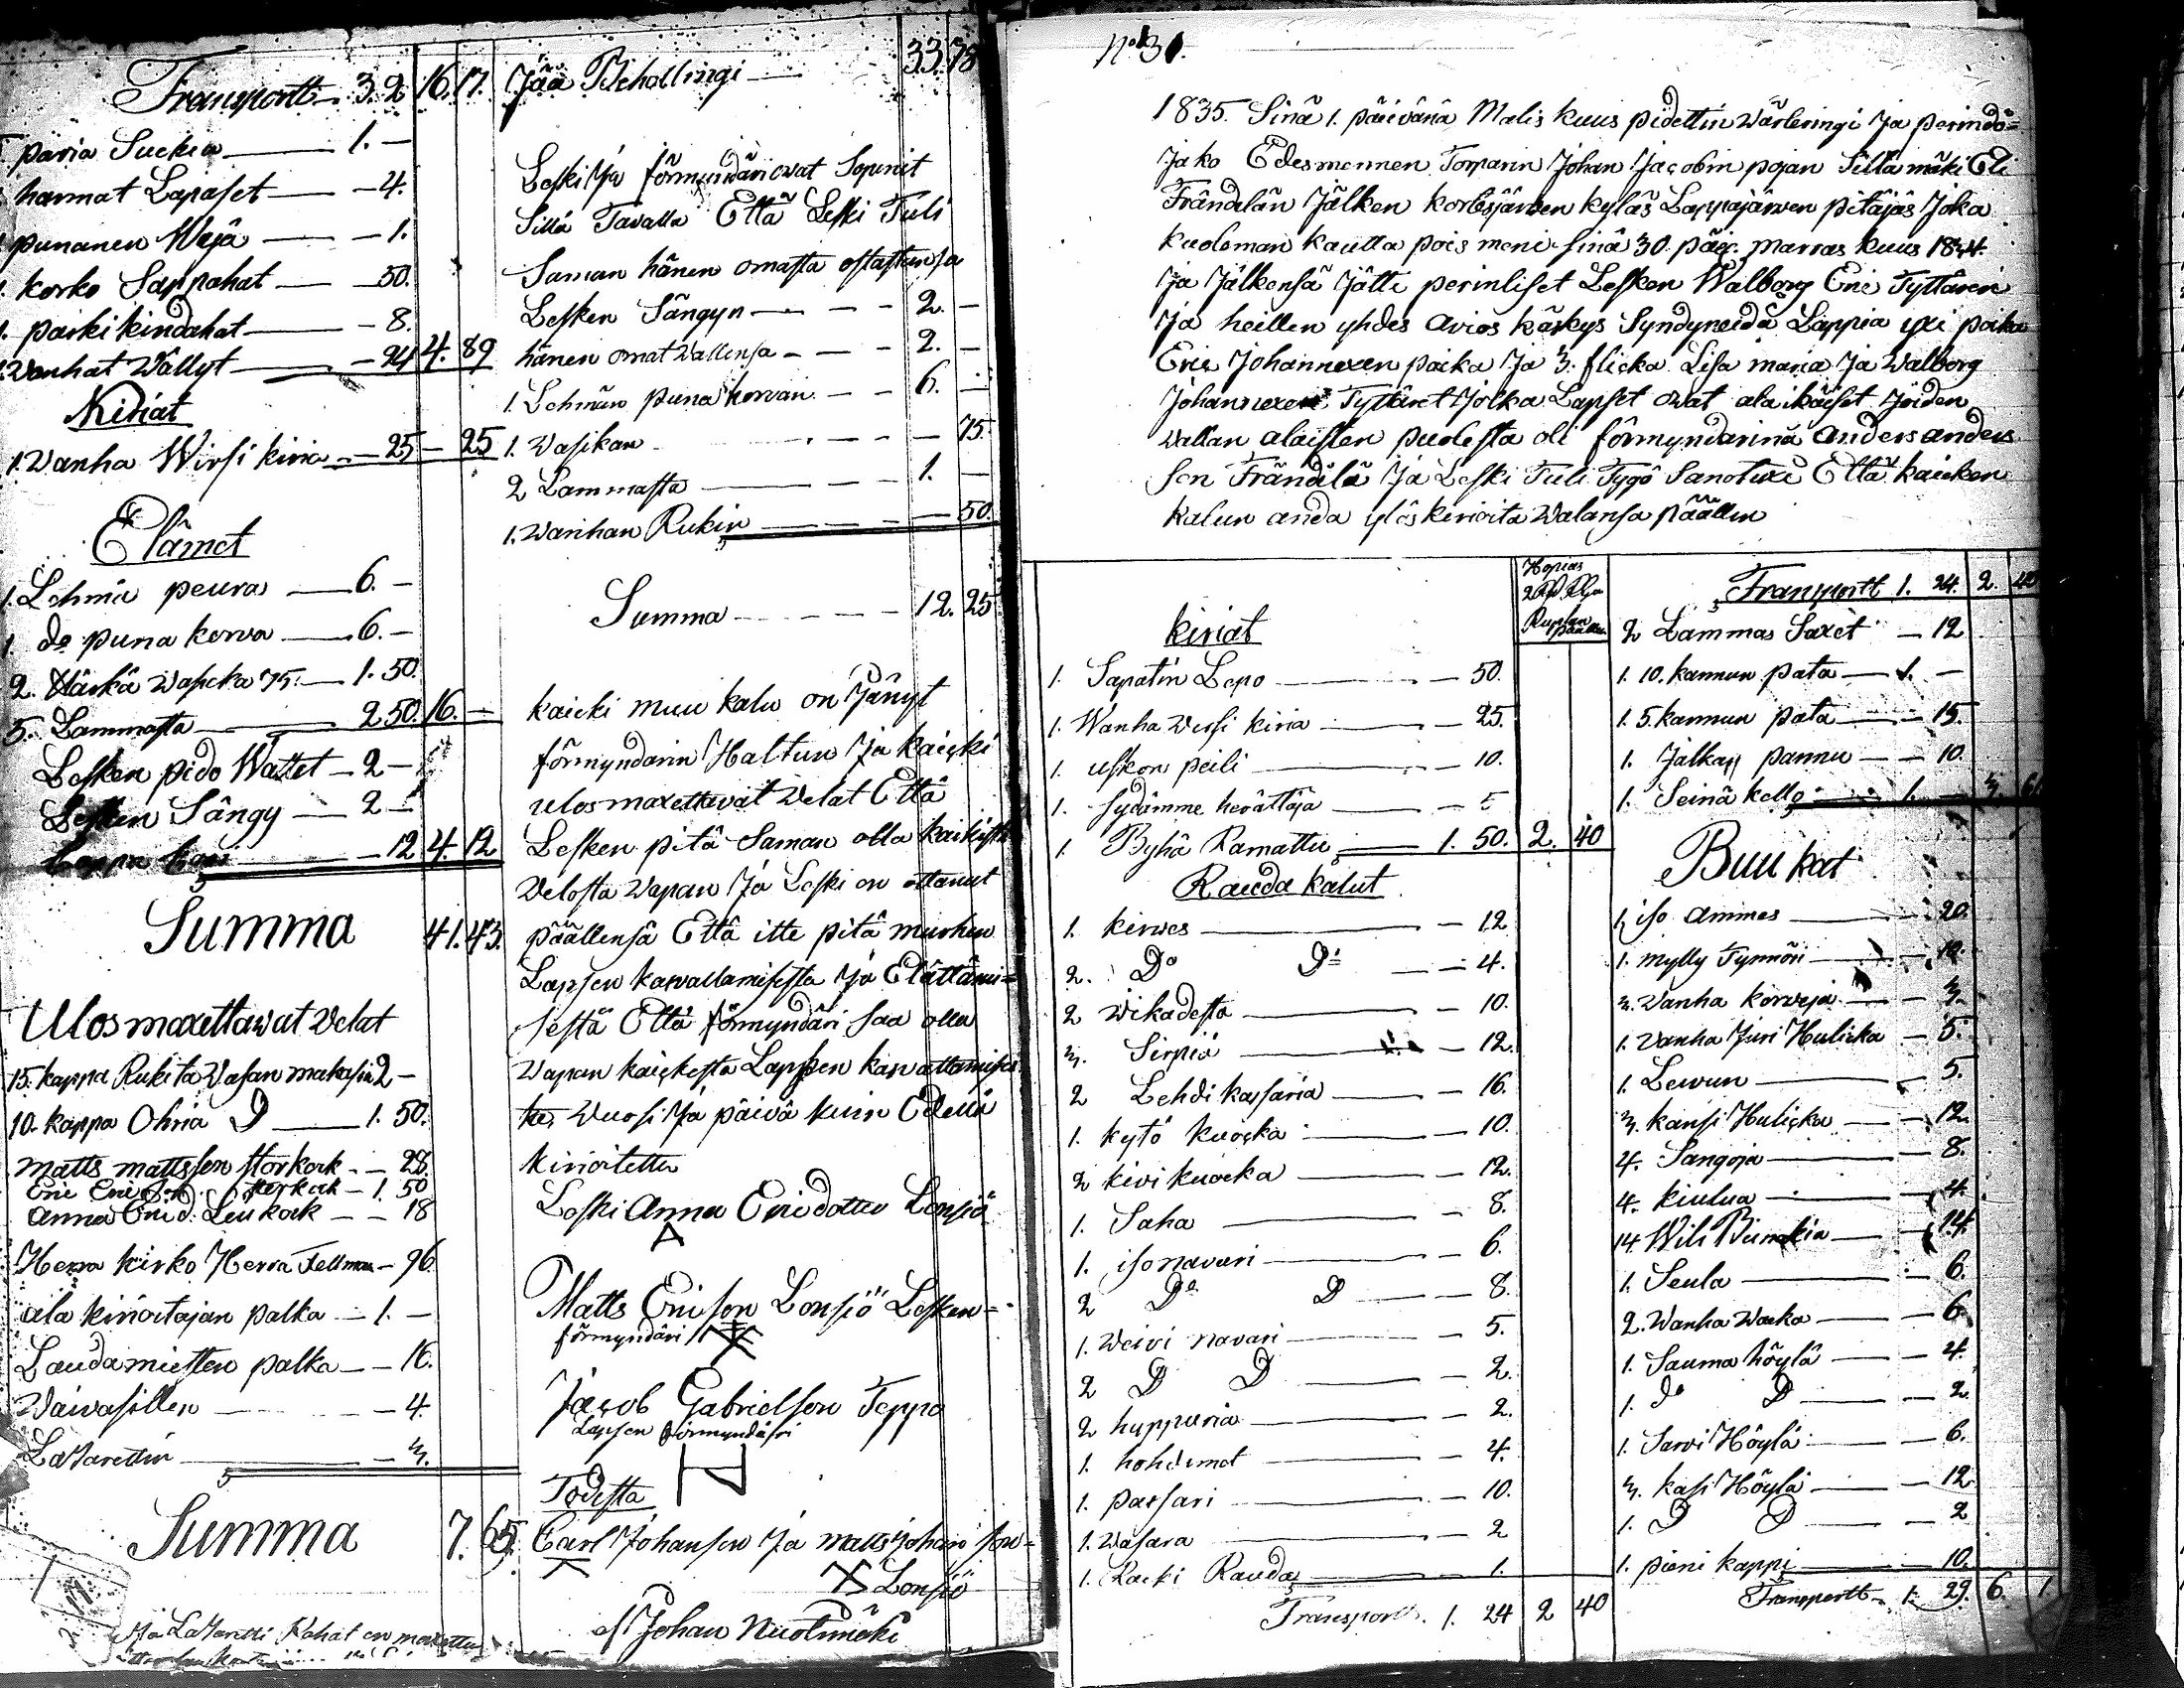 Transportt 32 16. 17.
paria Suckia 1. -
harmat Lapaset - 4.
punanen Wyjä - 1.
1. korko Sappahat 50.
1. parkikindahat - 8.
1. Wanhat Wällyt - 24 4. 89
Kiriat
1. Wanha Wirsi kiria - 25 - 25
Elämet
1. Lehmä peura 6. -
1. do puna korva 6. -
2. Härkä Wasicka 75. 1. 50.
5. Lammasta 2 50. 16. -
Lesken pido Wattet - 2 -
Lesken Sängy - 2 -
12 4. 12
Summa 41. 43.
Ulos maxettawat Velat
15. kappa Rukita Vasan makasin 2 -
10. kappa Ohria D 1. 50.
Matts mattsson storkock - 28.
Eric storkock - 1. 50
Anna Ericd. Leukock - - 18
Herra kirko Herra Fellman - 96
ala kirioitajan palka - 1. -
Laudamiesten palka - - 16.
Vaivasillen - 4.
Lasarettin - 3.
Summa 7. 65
Lasaretti Rahat on maxettu
Jää Behollingi 33. 78
Leski Ja förmyndäri owat Sopinit
Sillä Tavalla Että Leski Tuli
Saman hänen omasta ostastunsa
Lesken Sängyn - - - 2. -
hänen omat Wattensa - - - 2. -
1. Lehmän puna korvan - - 6. -
1. Wasikan - - - 75.
2 Lammasta - - 1. -
1. Wanhan Rukin - - 50.
Summa - - - - 12. 25
kaicki muu kalu on Jänyt
förmyndärin Haltun Ja kaicki
ulosmaxettavat Velat Että
Lesken pitä Saman olla kaikista
Velosta Vapan Ja Leski on ottanut
päällensä Että itte pitä murhen
Lapsen kasvattamisesta Ja Elättämi=
sestä Että förmyndäri saa olla
Vapan kaickesta Lapsen kasvattamises
ta, Vuosi Ja päivä kuin Edellä
kirioitettu
Leski Anna Ericdotter Lonsiö
Matts Ericson Lonsiö Lesken=
förmyndäri
Jacob Gabrielson Teppo
Lapsen förmyndäri
Todista
Carl Johanson Ja Matts Johan son=
Lonsiö
Johan Nuolimäki
No 31.
1835. Sinä 1. päivänä Malis kuus pidettin Wärleringi Ja perindö=
Jako Edesmennen Torparin Johan Jacobin pojan Sillämäki Eli
Frändilän Jälken kortesjärven kyläs Lappajärwen pitäjäs Joka
kuoleman kautta pois meni sinä 30. päiv. marras kuus 1834.
Ja Jälkensä Jätti perinliset Lesken Walborg Eric Tyttären
Ja heillen yhdes avios käskys Syndyneidä Lappia yxi poika
Eric Johannexen poika Ja 3. flicka Lisa maria Ja Walborg
Johannexen Tyttäret Jotka Lapset owat ala ikäiset Joiden
wallan alaisten puolesta oli förmyndärinä Anders anders
son Frändilä Ja Leski Tuli Tygö Sanotuxi Että kaicken
kalun anda ylöskirioita Walansa päällen
kiriat
Hopias
Ruplan
päällen
1. Sapatin Lepo - 50.
1. Wanha Wirsi kiria - 25.
1. uskon peili - 10.
1. sydämme herättäjä - 5
1. Byhä Ramattu 1. 50. 2. 40
Rauda kalut
1. kirwes - 12
2. Do Do - 4.
2 Wikadesta - 10.
3. Sirpiä - 12.
2 Lehdi kassaria - 16.
1. kytö kuocka - 10.
2 kivi kuocka - 12.
1. Saha - 8.
1. iso navari - 6.
2 Do D - 8.
1. Weivi navari - 5.
2 D D - 2.
2 huppuria - 2.
1. hohdimet - 4.
1. parsari - 10.
1. Wasara - 2
1. Racki Rauda - 1.
Transportt. 1. 24 2 40
Transportt 1. 24. 2. 40
2 Lammas Saxet - 12
1. 10. kannun pata 1. -
1. 5. kannun pata - 15.
1. Jalka pannu - - 10.
1. Seinä kello 1. - 3. 61
Buu kat
1. iso ammes - 20.
1. mylly Tynnöri - 10.
3. Vanha korvoja - 3.
1. Vanha Juri Hulicka - 5.
1. Lewun - 5.
3. kansi Hulicka - 12
4. Sangoja - 8.
4. kiulua - 4.
14. Wili - 14.
1. Seula - 6.
2. Wanha Wacka - 6.
1. Sauma höylä - 4.
1. do D - 2.
1. Sarvi Höylä - 6.
3. kasi Höylä - 12
1. D D - 2
1. pieni kappi - 10.
Transportt - 1. 29. 6. 1